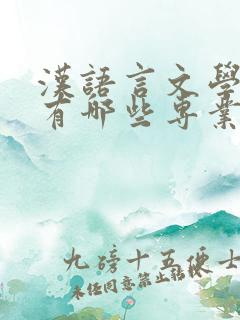 漢語言文學
有哪些專業
九磅十五便士
未经同意禁止転载